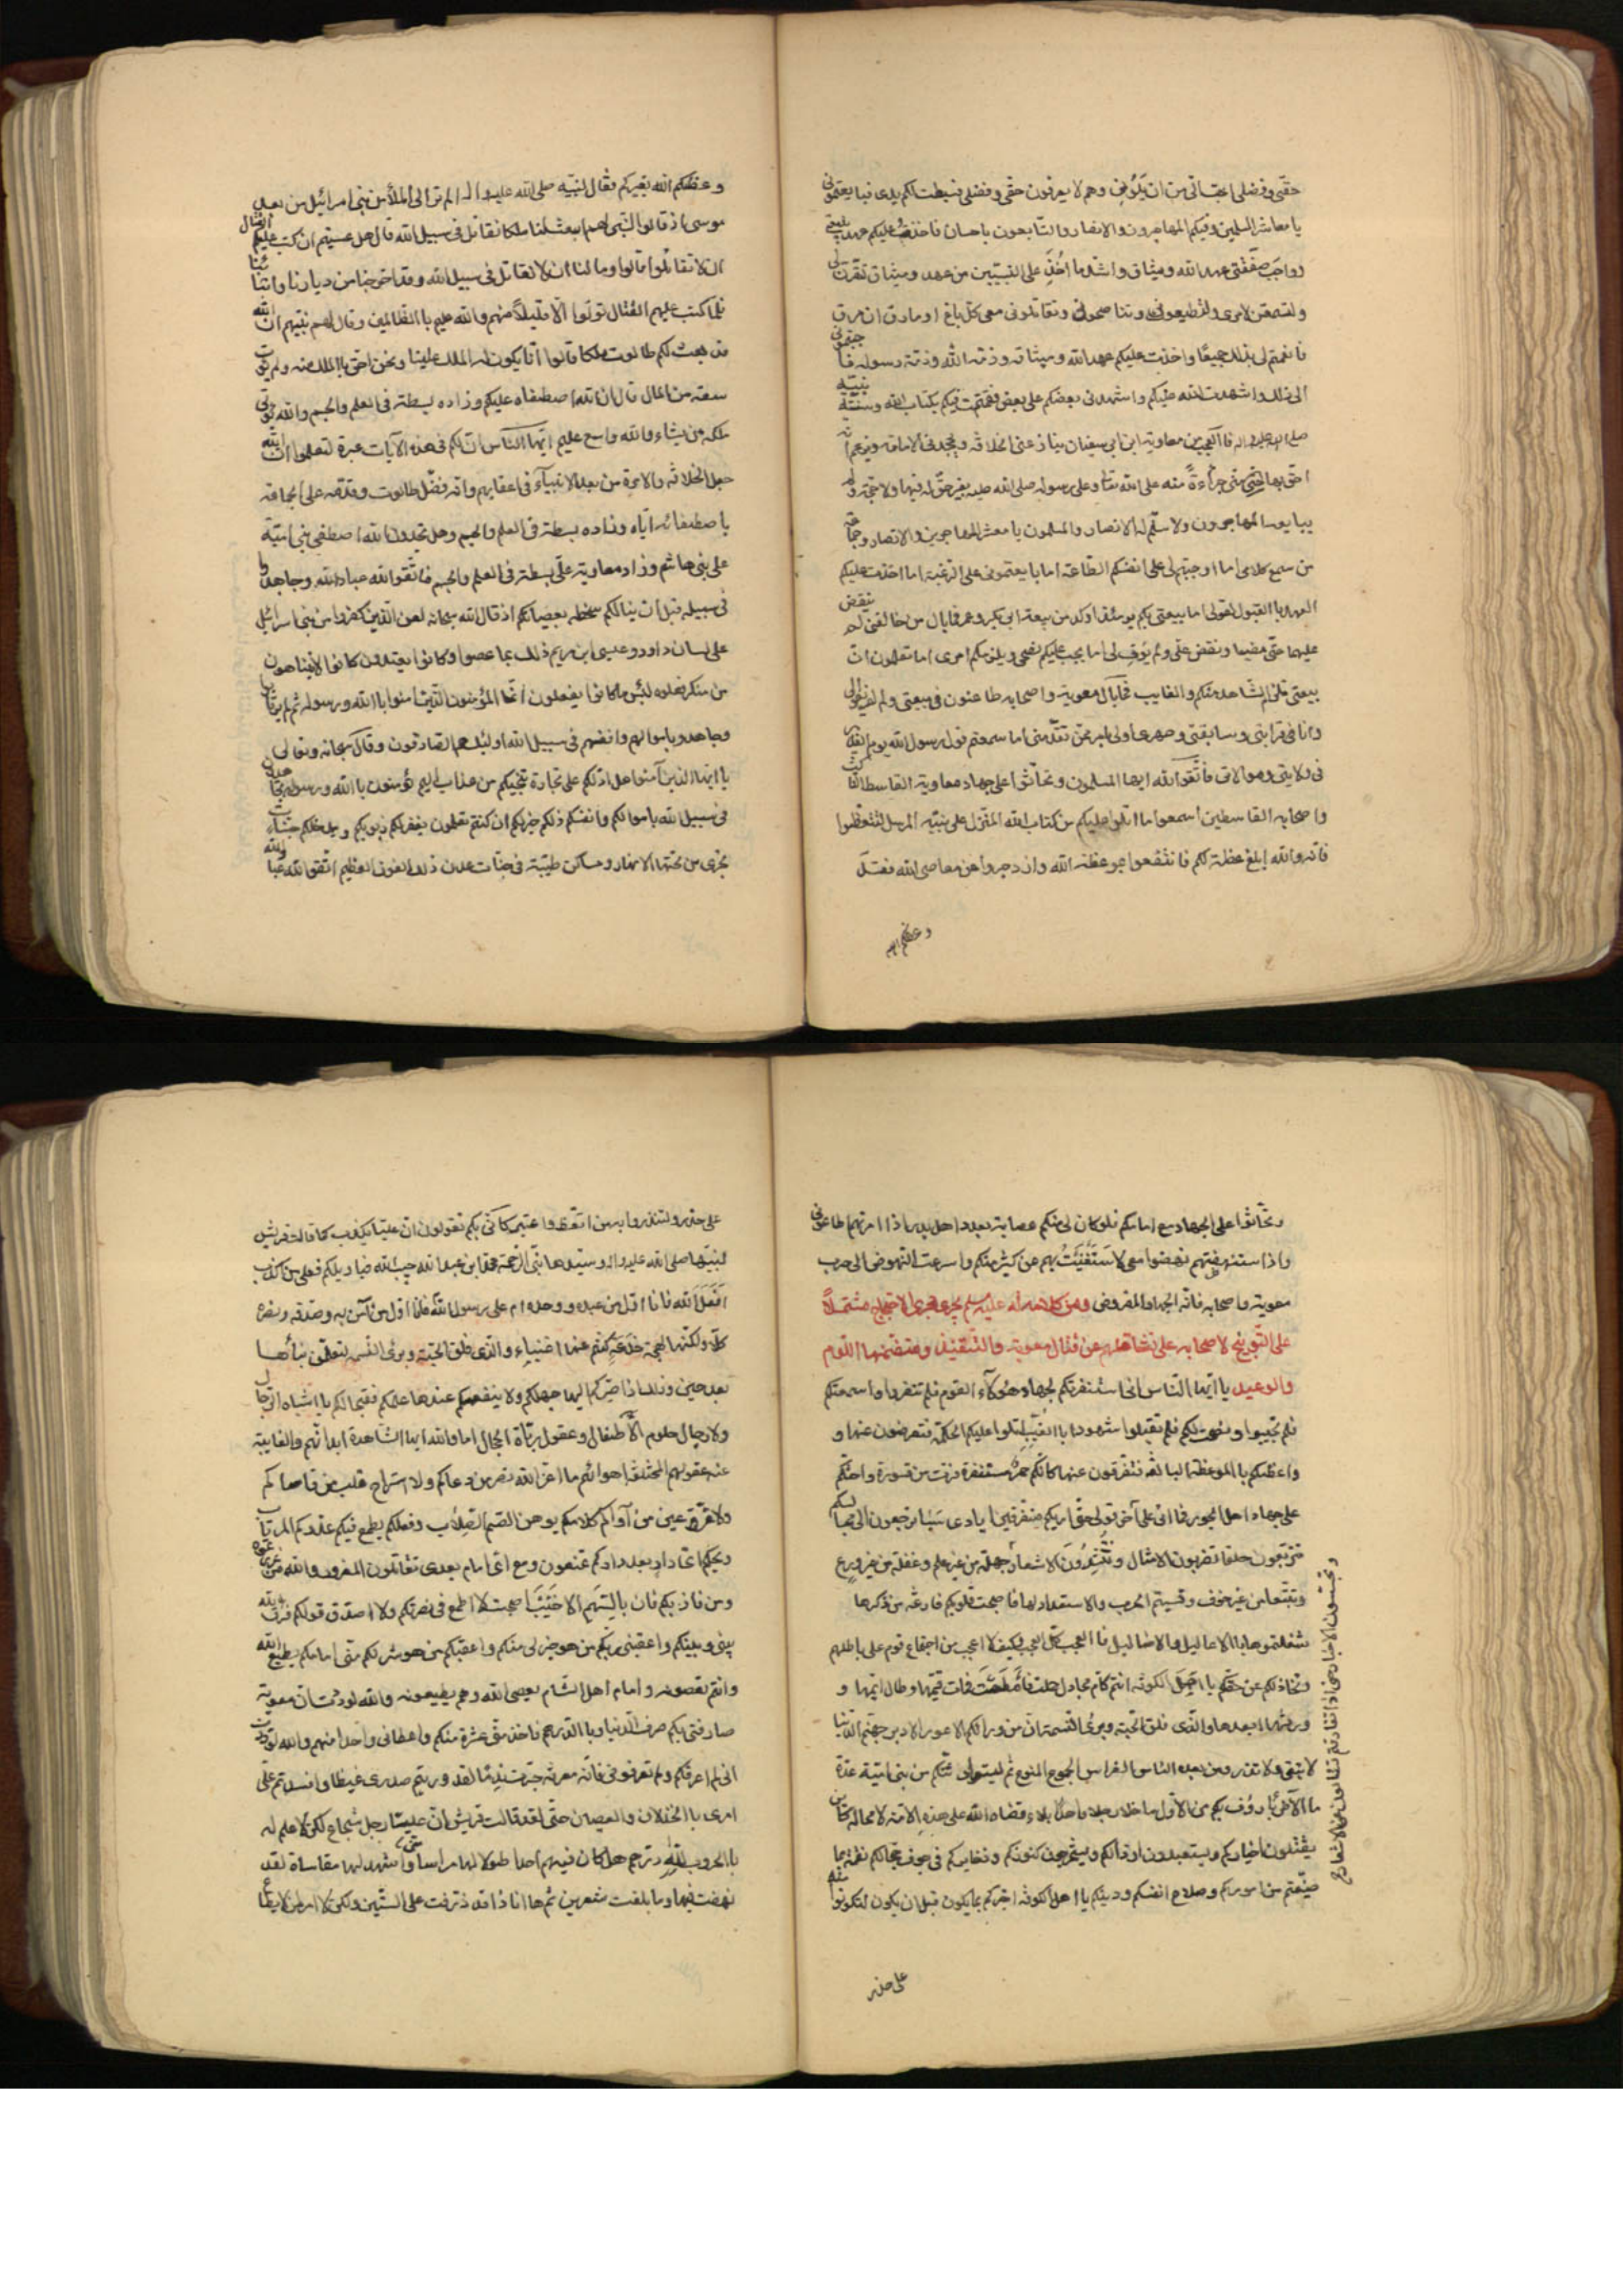 حقی و فضلی احب الی من ان یلونی وهم لا یعرفون حقی و فضلی فبسطت لکم یدی فبایعتمونی
یا معاشر المسلمین وفیکم المهاجرون والانصار والتابعون باحسان فاخذت علیکم عهد بیعتی
وواجب صفقتی عهد الله و میثاق واشد ما اخذ علی النبیین من عهد ومیثاق لتقرن لی
ولتسمعن لامری ولتطیعونی وتناصحونی وتقاتلون معی کل باغ او مارق ان مرق
فانعمتم لی بذلک جمیعا واخذت علیکم عهد الله ومیثاقه وذمة الله وذمة رسوله فاجبتمونی
الی ذلک واشهدت الله علیکم واشهدت بعضکم علی بعض فقمت فیکم بکتاب الله وسنة نبیه
صلی الله علیه واله فالعجب من معاویة ابن ابی سفیان ینازعنی الخلافة ویجحدنی الامامة ویزعم انه
احق بها منی جرأة منه علی الله تعا وعلی رسوله صلی الله علیه بغیر حق له فیها ولا حجة ولم
یبایعه المهاجرون ولا سلم له الانصار والمسلمون یا معشر المهاجرین والانصار وجماعة
من سمع کلامی اما اوجبتم لی علی انفسکم الطاعة اما بایعتمونی علی الرغبة اما اخذت علیکم
العهد باالقبول لقولی اما بیعتی بکم یومئذ اوکد من بیعة ابی بکر وعمر فما بال من خالفنی لم ینقض
علیهما حتی مضیا ونقض علی ولم یوف لی اما یجب علیکم نصحی ویلزمکم امری اما تعلمون ان
بیعتی تلزم الشاهد منکم والغایب فما بال معویة واصحابه طاعنون فی بیعتی ولم لم یفوا لی
وانا فی قرابتی وسابقتی وصهری اولی بالامر ممن تقدمنی اما سمعتم قول رسول الله یوم الغدیر
فی ولایتی وموالاتی فاتقوا الله ایها المسلمون وتحاثوا علی جهاد معاویة القاسط الناکث
واصحابه القاسطین اسمعوا ما اتلوا علیکم من کتاب الله المنزل علی نبیه المرسل لتتعظوا
فانه والله ابلغ عظة لکم فانتفعوا بموعظة الله وازدجروا عن معاصی الله فقد
وعظکم الله
وعظکم الله بغیرکم فقال لنبیه صلی الله علیه واله الم تر الی الملأ من بنی اسرائیل من بعد
موسی اذ قالوا لنبی لهم ابعث لنا ملکا نقاتل فی سبیل الله قال هل عسیتم ان کتب علیکم القتال
ان لا تقاتلوا قالوا وما لنا ان لا نقاتل فی سبیل الله وقد اخرجنا من دیارنا وابنائنا
فلما کتب علیهم القتال تولوا الا قلیلا منهم والله علیم باالظالمین وقال لهم نبیهم ان الله
قد بعث لکم طالوت ملکا قالوا انا یکون له الملک علینا ونحن احق باالملک منه ولم یؤت
سعة من المال قال ان الله اصطفاه علیکم وزاده بسطة فی العلم والجسم والله یؤتی
ملکه من یشاء والله واسع علیم ایها الناس ان لکم فی هذه الآیات عبرة لتعلموا ان الله
جعل الخلافة والامرة من بعد الانبیآء فی اعقابهم وانه فضل طالوت وقدمه علی الجماعة
باصطفائه ایاه وزاده بسطة فی العلم والجسم وهل تجدون الله اصطفی بنی امیة
علی بنی هاشم وزاد معاویة علی بسطة فی العلم والجسم فاتقوا الله عباد الله وجاهدوا
فی سبیله قبل ان ینالکم سخطه بعصیانکم اذ قال الله سبحانه لعن الذین کفروا من بنی اسرائیل
علی لسان داود وعیسی ابن مریم ذلک بما عصوا وکانوا یعتدون کانوا لا یتناهون
من منکر فعلوه لبئس ما کانوا یفعلون انما المؤمنون الذین امنوا باالله ورسوله ثم لم یرتابوا
وجاهدوا باموالهم وانفسهم فی سبیل الله اولئک هم الصادقون وقال سبحانه وتعالی
یا ایها الذین آمنوا هل ادلکم علی تجارة تنجیکم من عذاب الیم تؤمنون باالله ورسوله وتجاهدون
فی سبیل الله باموالکم وانفسکم ذلکم خیر لکم ان کنتم تعلمون یغفر لکم ذنوبکم ویدخلکم جنات
تجری من تحتها الانهار ومساکن طیبة فی جنات عدن ذلک الفوز العظیم اتقوا الله عباد الله
وتحاثوا علی الجهاد مع امامکم فلو کان لی منکم عصابة بعدد اهل بدر اذا امرتهم اطاعونی
واذا استنهضتهم نهضوا معی لاستغنیت بهم عن کثیر منکم واسرعت النهوض الی حرب
معویة واصحابه فانه الجهاد المفروض ومن کلامه له علیه سلم یجری مجری الاحتجاج مشتملا
علی التوبیخ لاصحابه علی تثاقلهم عن قتال معویة والتفنید ومتضمنها اللوم
والوعید یا ایها الناس انی استنفرتکم لجهاد هؤلآء القوم فلم تنفروا واسمعتکم
فلم تجیبوا ونصحت لکم فلم تقبلوا شهودا باالغیب اتلوا علیکم الحکمة فتعرضون عنها و
واعظکم باالموعظة البالغة فتفرقون عنها کانکم حمر مستنفرة فرت من قسورة واحثکم
علی جهاد اهل الجور فما اتی علی آخر قولی حتی اریکم متفرقین ایادی سبا ترجعون الی مجالسکم
تتربعون حلقا تضربون الامثال وتنشدون الاشعار جهلة من غیر علم وغفلة من غیر ورع
وتتبعا من غیر خوف ونسیتم الحرب والاستعداد لها فاصبحت قلوبکم فارغة من ذکرها
شغلتموها باالاعالیل والاضالیل فاالعجب کل العجب وکیف لا اعجب من اجتماع قوم علی باطلهم
وتخاذلکم عن حقکم یا اهل الکوفة انتم کام مجالد حملت فاملصت فمات قیمها وطال ایمها و
وورثها ابعدها والذی فلق الحبة وبرئ النسمة ان من ورائکم الاعور الادبر جهنم الدنیا
لا تبقی ولا تذر ومن بعده النهاس الفراس الجموع المنوع ثم لیتوارثنکم من بنی امیة عدة
ما الآخر بارؤف بکم من الاول ما خلا رجلا واحدا بلاء قضاه الله علی هذه الامة لا محالة کائن
یقتلون اخیارکم ویستعبدون اراذلکم ویستخرجون کنوزکم وذخایرکم فی جوف حجالکم نقمة بما
ضیعتم من امورکم وصلاح انفسکم ودینکم یا اهل الکوفة اخبرکم بما یکون قبل ان یکون لتکونوا منه
علی حذر
علی حذر ولتنذروا به من اتعظ واعتبر کانی بکم تقولون ان علیا یکذب کما قالت قریش
لنبیها صلی الله علیه واله وسیدها نبی الرحمة محمد ابن عبد الله حبیب الله فیا ویلکم فعلی من اکذب
افعلی الله فانا اول من عبده ووحده ام علی رسول الله فانا اول من آمن به وصدقه ونصره
کلا ولکنها لهجة خدعة کنتم عنها اغنیاء والذی فلق الحبة وبرئ النسمة لتعلمن نبأها
بعد حین وذلک اذا صیرکم الیها جهلکم ولا ینفعکم عندها علمکم فقبحا لکم یا اشباه الرجال
ولا رجال حلوم الاطفال وعقول ربات الحجال اما والله ایها الشاهدة ابدانهم والغایبة
عنهم عقولهم المختلفة اهوائهم ما اعز الله نصر من دعاکم ولا استراح قلب من قاساکم
ولا قرت عین من آواکم کلامکم یوهن الصم الصلاب وفعلکم یطمع فیکم عدوکم المرتاب
ویحکم ای دار بعد دارکم تمنعون ومع ای امام بعدی تقاتلون المغرور والله من غررتموه
ومن فاز بکم فاز باالسهم الاخیب اصبحت لا اطمع فی نصرتکم ولا اصدق قولکم فرق الله
بینی وبینکم واعقبنی بکم من هو خیر لی منکم واعقبکم من هو شر لکم منی امامکم یطیع الله
وانتم تعصونه وامام اهل الشام یعصی الله وهم یطیعونه والله لوددت ان معویة
صارفنی بکم صرف الدنیار باالدرهم فاخذ منی عشرة منکم واعطانی واحدا منهم والله لوددت
انی لم اعرفکم ولم تعرفونی فانه معرفة جرت ندما لقد وریتم صدری غیظا وافسدتم علی
امری باالخذلان والعصیان حتی لقد قالت قریش ان علیا رجل شجاع لکن لا علم له
باالحروب لله درهم هل کان فیهم احد اطول لها مراسا منی واشد لها مقاساة لقد
نهضت فیها وما بلغت عشرین ثم ها انا ذا قد ذرفت علی الستین ولکن لا امر لمن لا یطاع